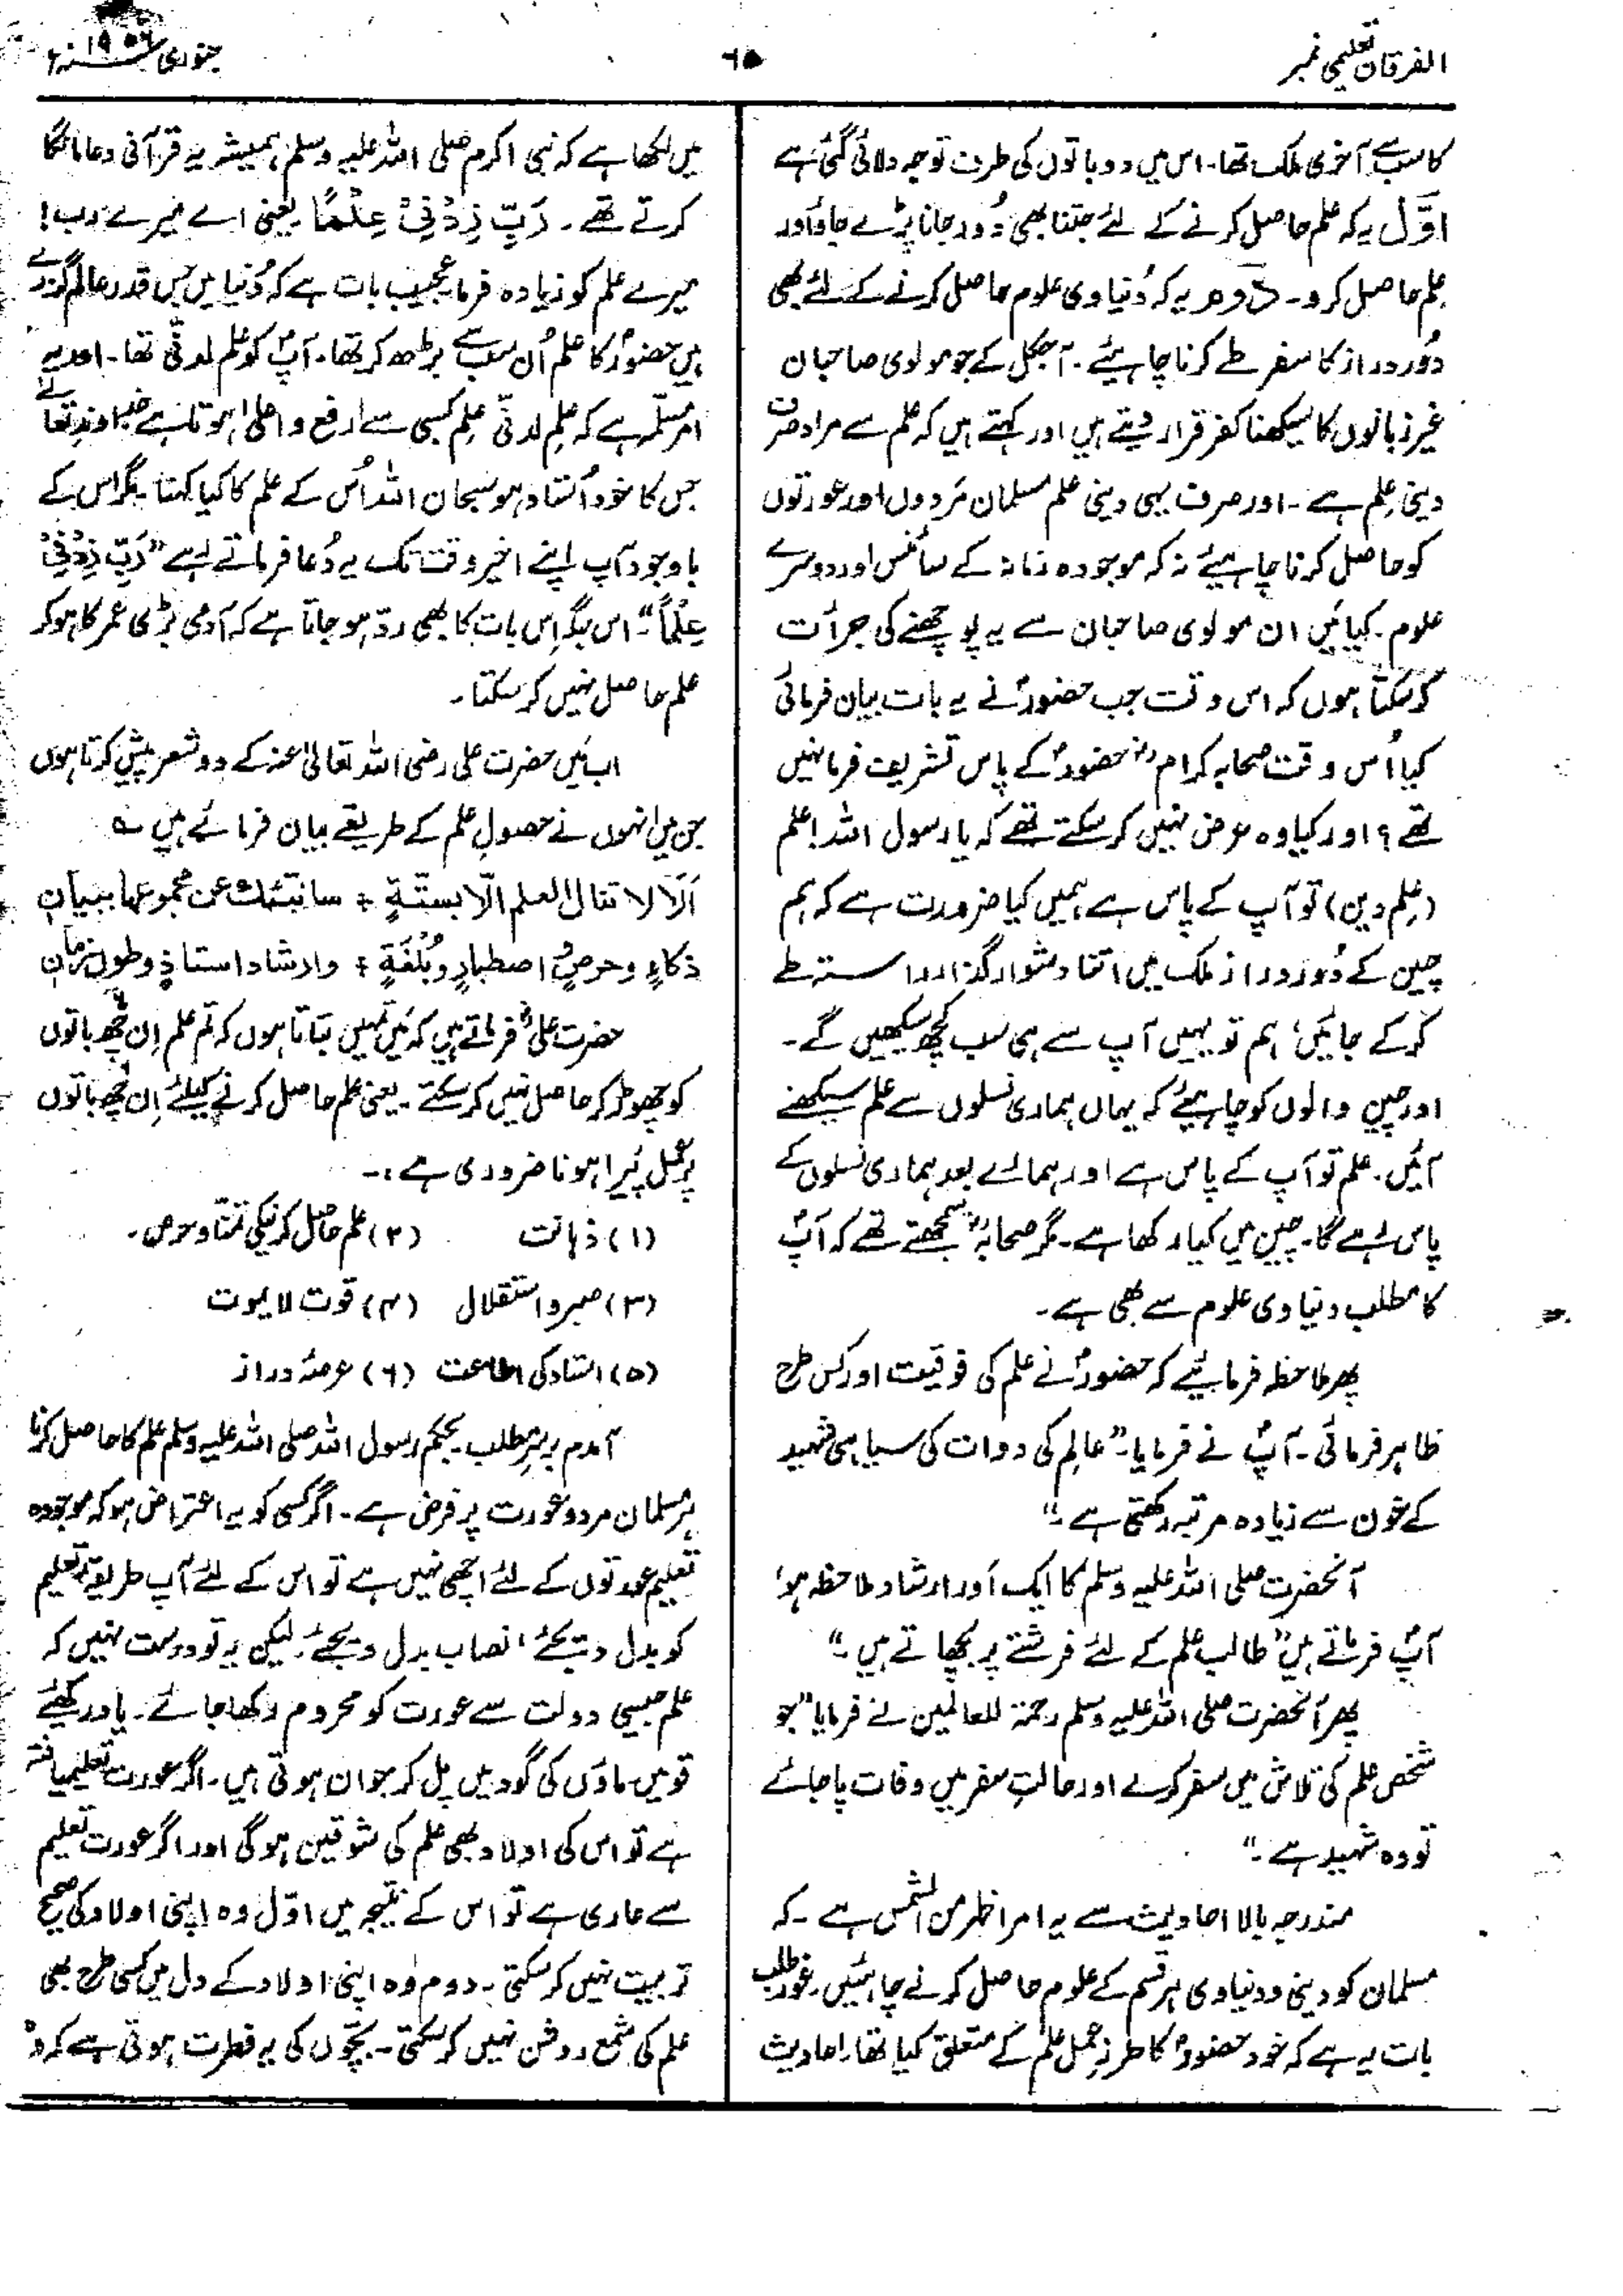 الفرقان تعلیمی نمبر
۶۵
جنوری ۱۹۵۶ء
کا سب سے آخری ملک تھا۔ اس میں دو باتوں کی طرف توجہ دلائی گئی ہے
اوّل یہ کہ علم حاصل کرنے کے لئے جتنا بھی دُور جانا پڑے جاؤ اور
علم حاصل کرو۔ دوم یہ کہ دُنیاوی علوم حاصل کرنے کے لئے بھی
دُور دراز کا سفر طے کرنا چاہیئے۔ آجکل کے جو مولوی صاحبان
غیر زبانوں کا سیکھنا کفر قرار دیتے ہیں اور کہتے ہیں کہ علم سے مراد صرف
دینی علم ہے۔ اور صرف یہی دینی علم مسلمان مَردوں اور عورتوں
کو حاصل کرنا چاہیئے نہ کہ موجودہ زمانہ کے سائنس اور دوسرے
علوم۔ کیا میں ان مولوی صاحبان سے یہ پوچھنے کی جرأت
کر سکتا ہوں کہ اس وقت جب حضورؐ نے یہ بات بیان فرمائی
کیا اُس وقت صحابہ کرامؓ حضورؐ کے پاس تشریف فرما نہیں
تھے؟ اور کیا وہ عرض نہیں کر سکتے تھے کہ یا رسول اللہ! علم
(علم دین) تو آپ کے پاس ہے ہمیں کیا ضرورت ہے کہ ہم
چین کے دُور دراز ملک میں اتنا دشوار گذار راستہ طے
کر کے جائیں، ہم تو یہیں آپ سے ہی سب کچھ سیکھیں گے۔
اور چین والوں کو چاہیئے کہ یہاں ہماری نسلوں سے علم سیکھنے
آئیں۔ علم تو آپ کے پاس ہے اور ہمارے بعد ہماری نسلوں کے
پاس رہے گا۔ چین میں کیا رکھا ہے۔ مگر صحابہؓ سمجھتے تھے کہ آپؐ
کا مطلب دنیاوی علوم سے بھی ہے۔
پھر ملاحظہ فرمائیے کہ حضورؐ نے علم کی فوقیت اور کس طرح
ظاہر فرمائی۔ آپؐ نے فرمایا۔ "عالم کی دوات کی سیاہی شہید
کے خون سے زیادہ مرتبہ رکھتی ہے۔"
آنحضرت صلی اللہ علیہ وسلم کا ایک اَور ارشاد ملاحظہ ہو،
آپؐ فرماتے ہیں "طالب علم کے لئے فرشتے پر بچھاتے ہیں۔"
پھر آنحضرت صلی اللہ علیہ وسلم رحمۃ للعالمین نے فرمایا "جو
شخص علم کی تلاش میں سفر کرے اور حالتِ سفر میں وفات پا جائے
تو وہ شہید ہے۔"
مندرجہ بالا احادیث سے یہ امر اظہر من الشمس ہے۔ کہ
مسلمان کو دینی و دنیاوی ہر قسم کے علوم حاصل کرنے چاہئیں۔ غور طلب
بات یہ ہے کہ خود حضورؐ کا طرزِ عمل علم کے متعلق کیا تھا۔ احادیث
میں لکھا ہے کہ نبی اکرم صلی اللہ علیہ وسلم ہمیشہ یہ قرآنی دعا مانگا
کرتے تھے۔ رَبِّ زِدْنِیْ عِلْمًا یعنی اے میرے رب!
میرے علم کو زیادہ فرما۔ عجیب بات ہے کہ دُنیا میں جس قدر عالم گذرے
ہیں حضورؐ کا علم اُن سب سے بڑھ کر تھا۔ آپؐ کو علم لدنّی تھا۔ اور یہ
امر مسلّمہ ہے کہ علمِ لدنّی علمِ کسبی سے ارفع و اعلیٰ ہوتا ہے خداوند تعالیٰ
جس کا خود اُستاد ہو سبحان اللہ اُس کے علم کا کیا کہنا۔ مگر اس کے
باوجود آپ اپنے اخیر وقت تک یہ دُعا فرماتے رہے "رَبِّ زِدْنِیْ
عِلْمًا"۔ اس جگہ اِس بات کا بھی ردّ ہو جاتا ہے کہ آدمی بڑی عمر کا ہو کر
علم حاصل نہیں کر سکتا۔
اب میں حضرت علی رضی اللہ تعالیٰ عنہ کے دو شعر پیش کرتا ہوں
جن میں انہوں نے حصولِ علم کے طریقے بیان فرمائے ہیں ؎
اَلَا لا تنال العلم الّا بستّةٍ ؞ سانبّئك عن مجموعها ببيانِ
ذكاءٍ وحرصٍ اصطبارٍ وبُلْغَةٍ ؞ وارشاد استاذٍ وطول زمان
حضرت علیؓ فرماتے ہیں کہ میں تمہیں بتاتا ہوں کہ تم علم اِن چھ باتوں
کو چھوڑ کر حاصل نہیں کر سکتے۔ یعنی علم حاصل کرنے کیلئے اِن چھ باتوں
پر عمل پَیرا ہونا ضروری ہے:۔
(۱) ذہانت (۲) علم حاصل کرنیکی تمنّا و حرص۔
(۳) صبر و استقلال (۴) قوت لا یموت
(۵) استاد کی اطاعت (۶) عرصۂ دراز
آمدم برسرِ مطلب۔ بحکم رسول اللہ صلی اللہ علیہ وسلم علم کا حاصل کرنا
ہر مسلمان مرد و عورت پر فرض ہے۔ اگر کسی کو یہ اعتراض ہو کہ موجودہ
تعلیم عورتوں کے لئے اچھی نہیں ہے تو اس کے لئے آپ طریقۂ تعلیم
کو بدل دیجئے، نصاب بدل دیجئے۔ لیکن یہ تو درست نہیں کہ
علم جیسی دولت سے عورت کو محروم رکھا جائے۔ یاد رکھیئے
قومیں ماؤں کی گود میں پل کر جوان ہوتی ہیں۔ اگر عورت تعلیمیافتہ
ہے تو اس کی اولاد بھی علم کی شوقین ہوگی اور اگر عورت تعلیم
سے عاری ہے تو اس کے نتیجہ میں اوّل وہ اپنی اولاد کی صحیح
تربیت نہیں کر سکتی۔ دوم وہ اپنی اولاد کے دل میں کسی طرح بھی
علم کی شمع روشن نہیں کر سکتی۔ بچّوں کی یہ فطرت ہوتی ہے کہ وہ